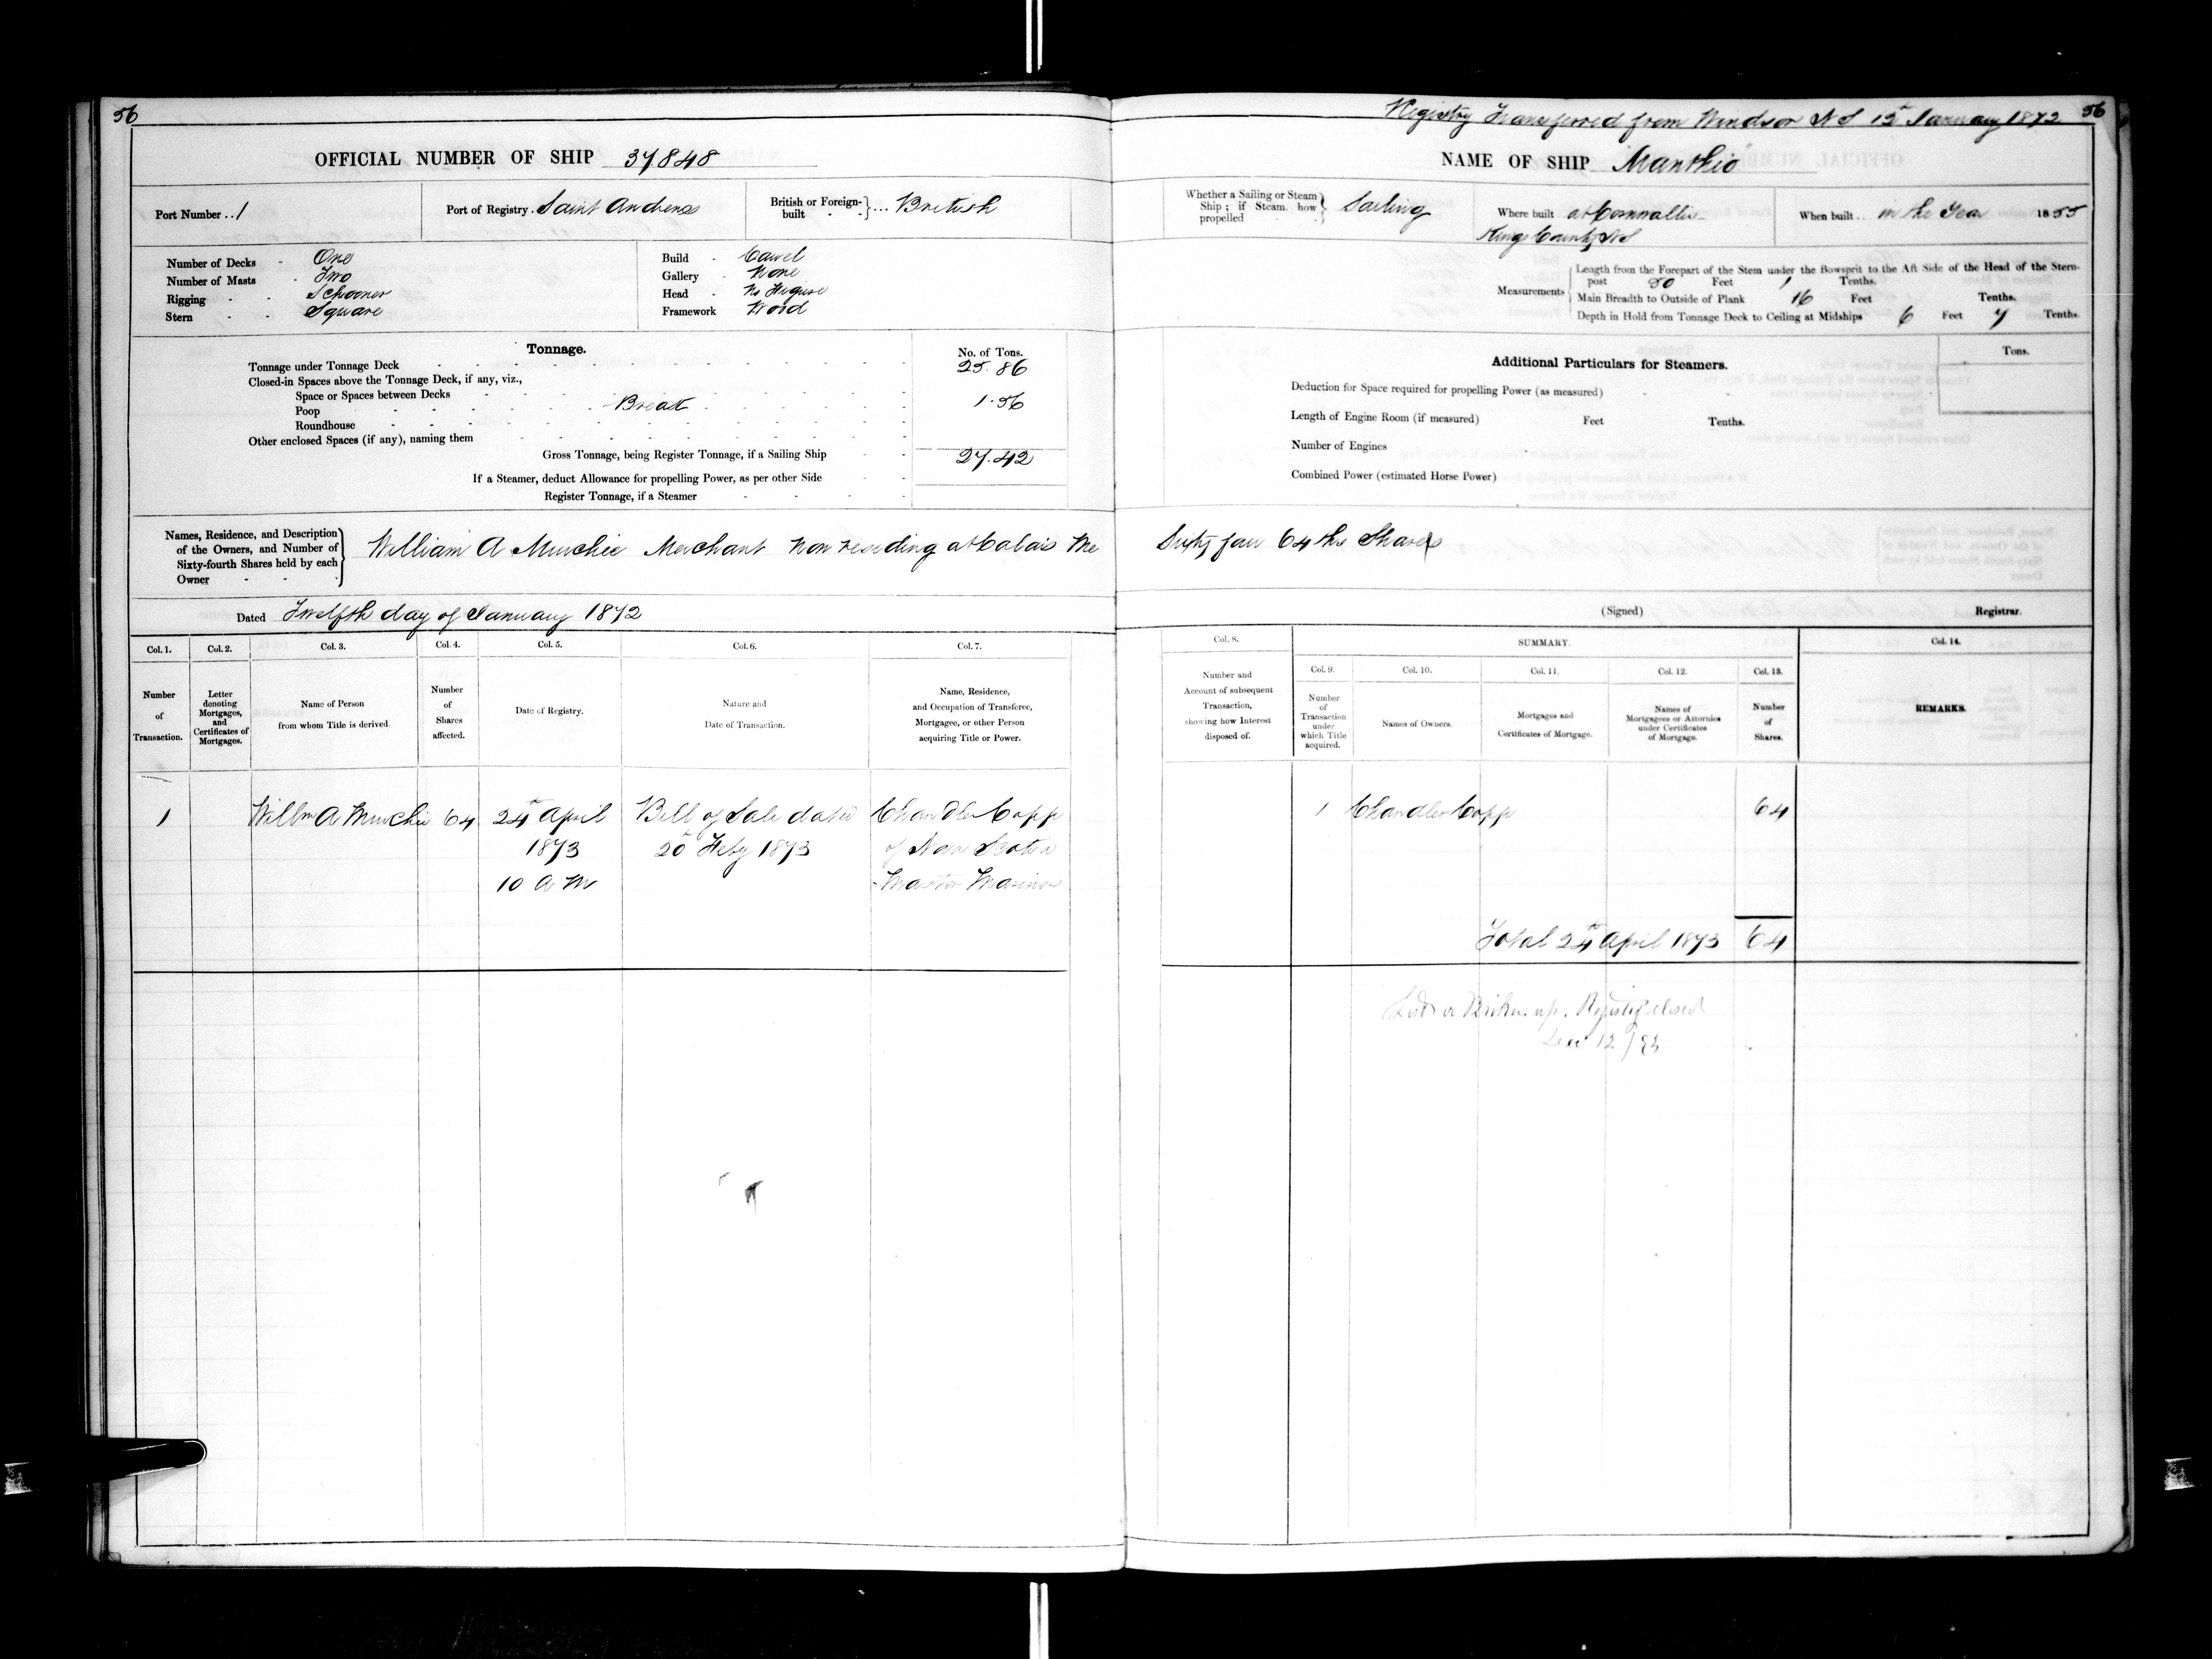 56
OFFICIAL NUMBER OF SHIP 37848
Port Number .. 1
Port of Registry . Saint Andrews
British or Foreign-built } ... British
Number of Decks - One
Number of Masts - Two
Rigging - - Schooner
Stern - - Square
Build - Carvel
Gallery - None
Head - No Figure
Framework Wood
Tonnage.
No. of Tons.
Tonnage under Tonnage Deck 25.86
Closed-in Spaces above the Tonnage Deck, if any, viz.,
Space or Spaces between Decks
Poop - Break 1.56
Roundhouse
Other enclosed Spaces (if any), naming them
Gross Tonnage, being Register Tonnage, if a Sailing Ship 27.42
If a Steamer, deduct Allowance for propelling Power, as per other Side
Register Tonnage, if a Steamer
Names, Residence, and Description
of the Owners, and Number of
Sixty-fourth Shares held by each
Owner
William A Murchie Merchant Non residing at Calais Me
Dated Twelfth day of January 1872
Col. 1. Col. 2. Col. 3. Col. 4. Col. 5. Col. 6. Col. 7.
Number of Transaction.
Letter denoting Mortgages, and Certificates of Mortgages.
Name of Person from whom Title is derived.
Number of Shares affected.
Date of Registry.
Nature and Date of Transaction.
Name, Residence, and Occupation of Transferee, Mortgagee, or other Person acquiring Title or Power.
1 Willm A Murchie 64 24th April Bill of Sale dated Chandler Copp
1873 20th Feby 1873 of Nova Scotia
10 A M Master Mariner
Registry Transferred from Windsor NS 12th January 1872 56
NAME OF SHIP
Whether a Sailing or Steam Ship ; if Steam. how propelled } Sailing
Where built at Cornwallis
Kings County NS
When built .. in the Year 1855
Measurements
Length from the Forepart of the Stem under the Bowsprit to the Aft Side of the Head of the Stern-
post 50 Feet 1 Tenths.
Main Breadth to Outside of Plank 16 Feet Tenths.
Depth in Hold from Tonnage Deck to Ceiling at Midships 6 Feet 7 Tenths.
Additional Particulars for Steamers.
Tons.
Deduction for Space required for propelling Power (as measured)
Length of Engine Room (if measured) Feet Tenths.
Number of Engines
Combined Power (estimated Horse Power)
Sixty four 64ths Shares
(Signed) Registrar.
Col. 8. SUMMARY. Col. 14.
Col. 9. Col. 10. Col. 11. Col. 12. Col. 13.
Number and Account of subsequent Transaction, showing how Interest disposed of.
Number of Transaction under which Title acquired.
Names of Owners.
Mortgages and Certificates of Mortgage.
Names of Mortgagees or Attornies under Certificates of Mortgage.
Number of Shares.
REMARKS.
1 Chandler Copp 64
Total 24th April 1873 64
Lost or Broken up. Registry closed